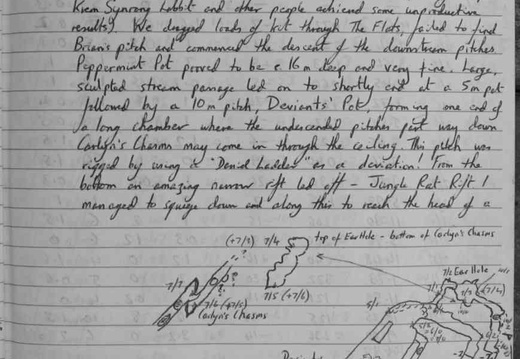 Kiem Synrang Labbit and other people achieved some unproductive
results). We dragged loads of kit through The Flats, failed to find
Brian's pitch and commenced the descent of the downstream pitches.
Peppermint Pot proved to be c.16m deep and very fine. Large,
sculpted stream passage led on to shortly end at a 5m pot
followed by a 10m pitch, Deviants' Pot, forming one end of
a long chamber where the undescended pitches part way down
Carlyn's Charms may come in through the ceiling. This pitch was
rigged by using a "Denid Ladder" as a deviation! From the
bottom an amazing narrow rift led off - Jungle Rat Rift I
managed to squeeze down and along this to reach the head of a
(+7/3) 7/4 top of Ear Hole - bottom of Carlyn's Chasms
7/3
7/2 Ear Hole
7/5 (+7/6)
7/6 (+7/5)
Carlyn's Chasms
5/1